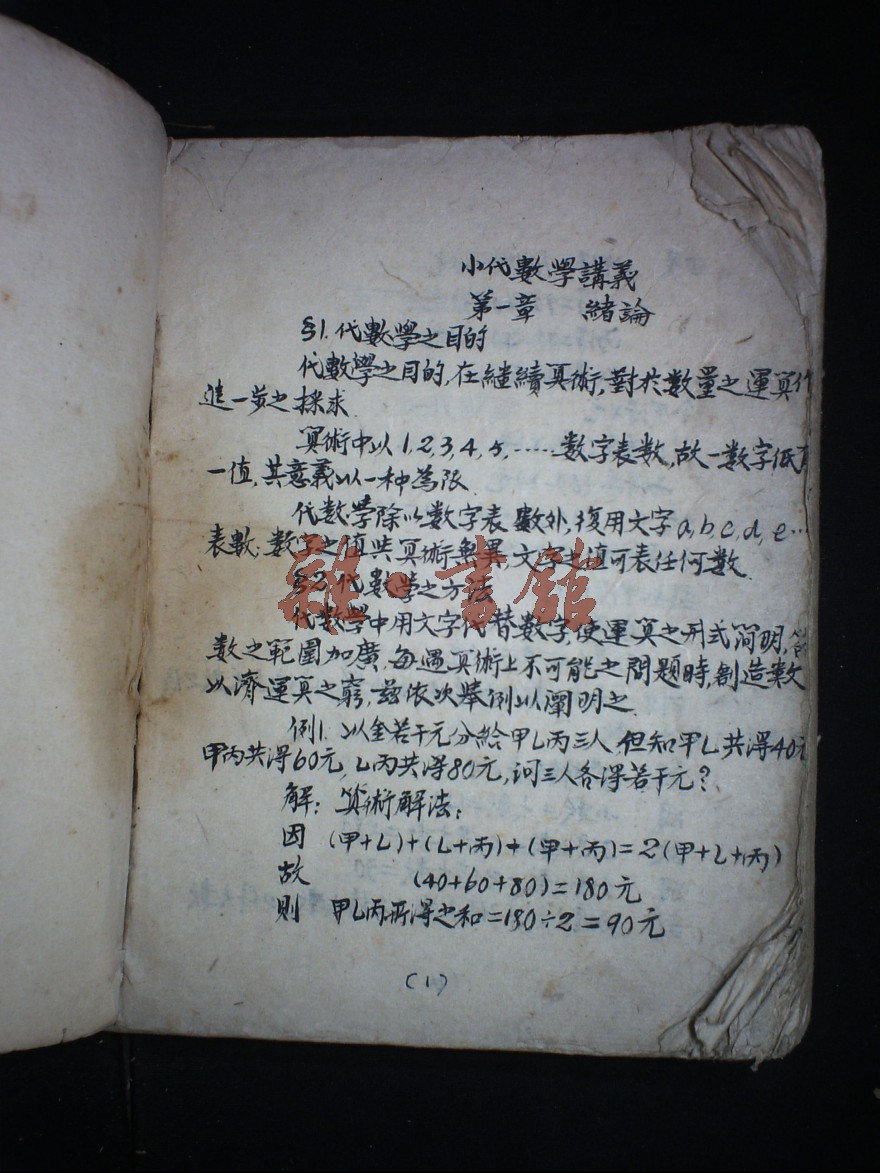 小代數學講義
第一章 緒論
§1.代數學之目的
代數學之目的,在繼續算術,對於數量之運算作
進一步之探求.
算術中以1,2,3,4,5,……数字表数,故一数字低
一值,其意義以一种為限.
代数學除以数字表數外,復用文字a,b,c,d,e…
表數;数字之值與算術無異,文字之值可表任何数.
§2.代數學之方法
雜·書館
代数學中用文字代替数字,使運算之形式简明,
数之範圍加廣,每遇算術上不可能之問題時,創造数
以濟運算之窮,兹依次举例以闡明之.
例1. 以金若干元分給甲乙丙三人 但知甲乙共得40元
甲丙共得60元,乙丙共得80元,问三人各得若干元?
解: 算術解法:
因 (甲+乙)+(乙+丙)+(甲+丙)=2(甲+乙+丙)
故 (40+60+80)=180元
則 甲乙丙所得之和=180÷2=90元
(1)